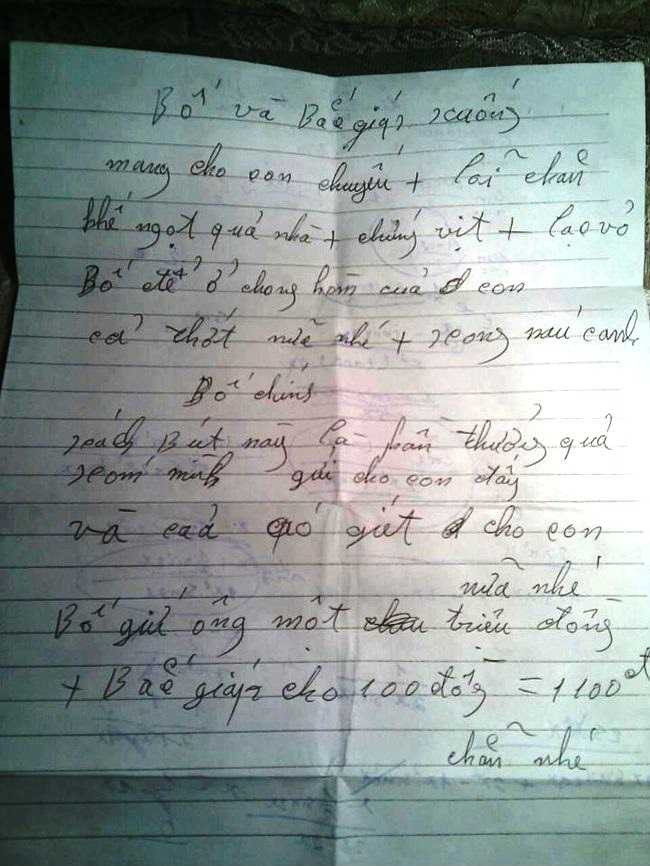 Bố và Bác giáp xuống
mang cho con chuyến + lai chẵn
khế ngọt quả nhà + chứng vịt + lạc vỏ
Bố để ở chong hòm của con
cả thót nữa nhé + xong nấu canh
Bố chính
xách Bút này là phần thưởng quả
xóm mình gửi cho con đấy
và cả có giết cho con
nữa nhé
Bố gửi ông một triệu đồng
+ Bác giáp cho 100 đồng = 1100đ
chẵn nhé